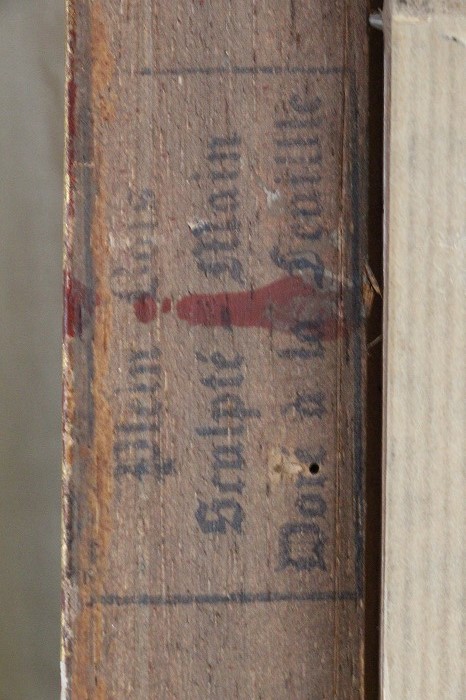 Plein Bois
Sculpté Main
Doré à la Feuille